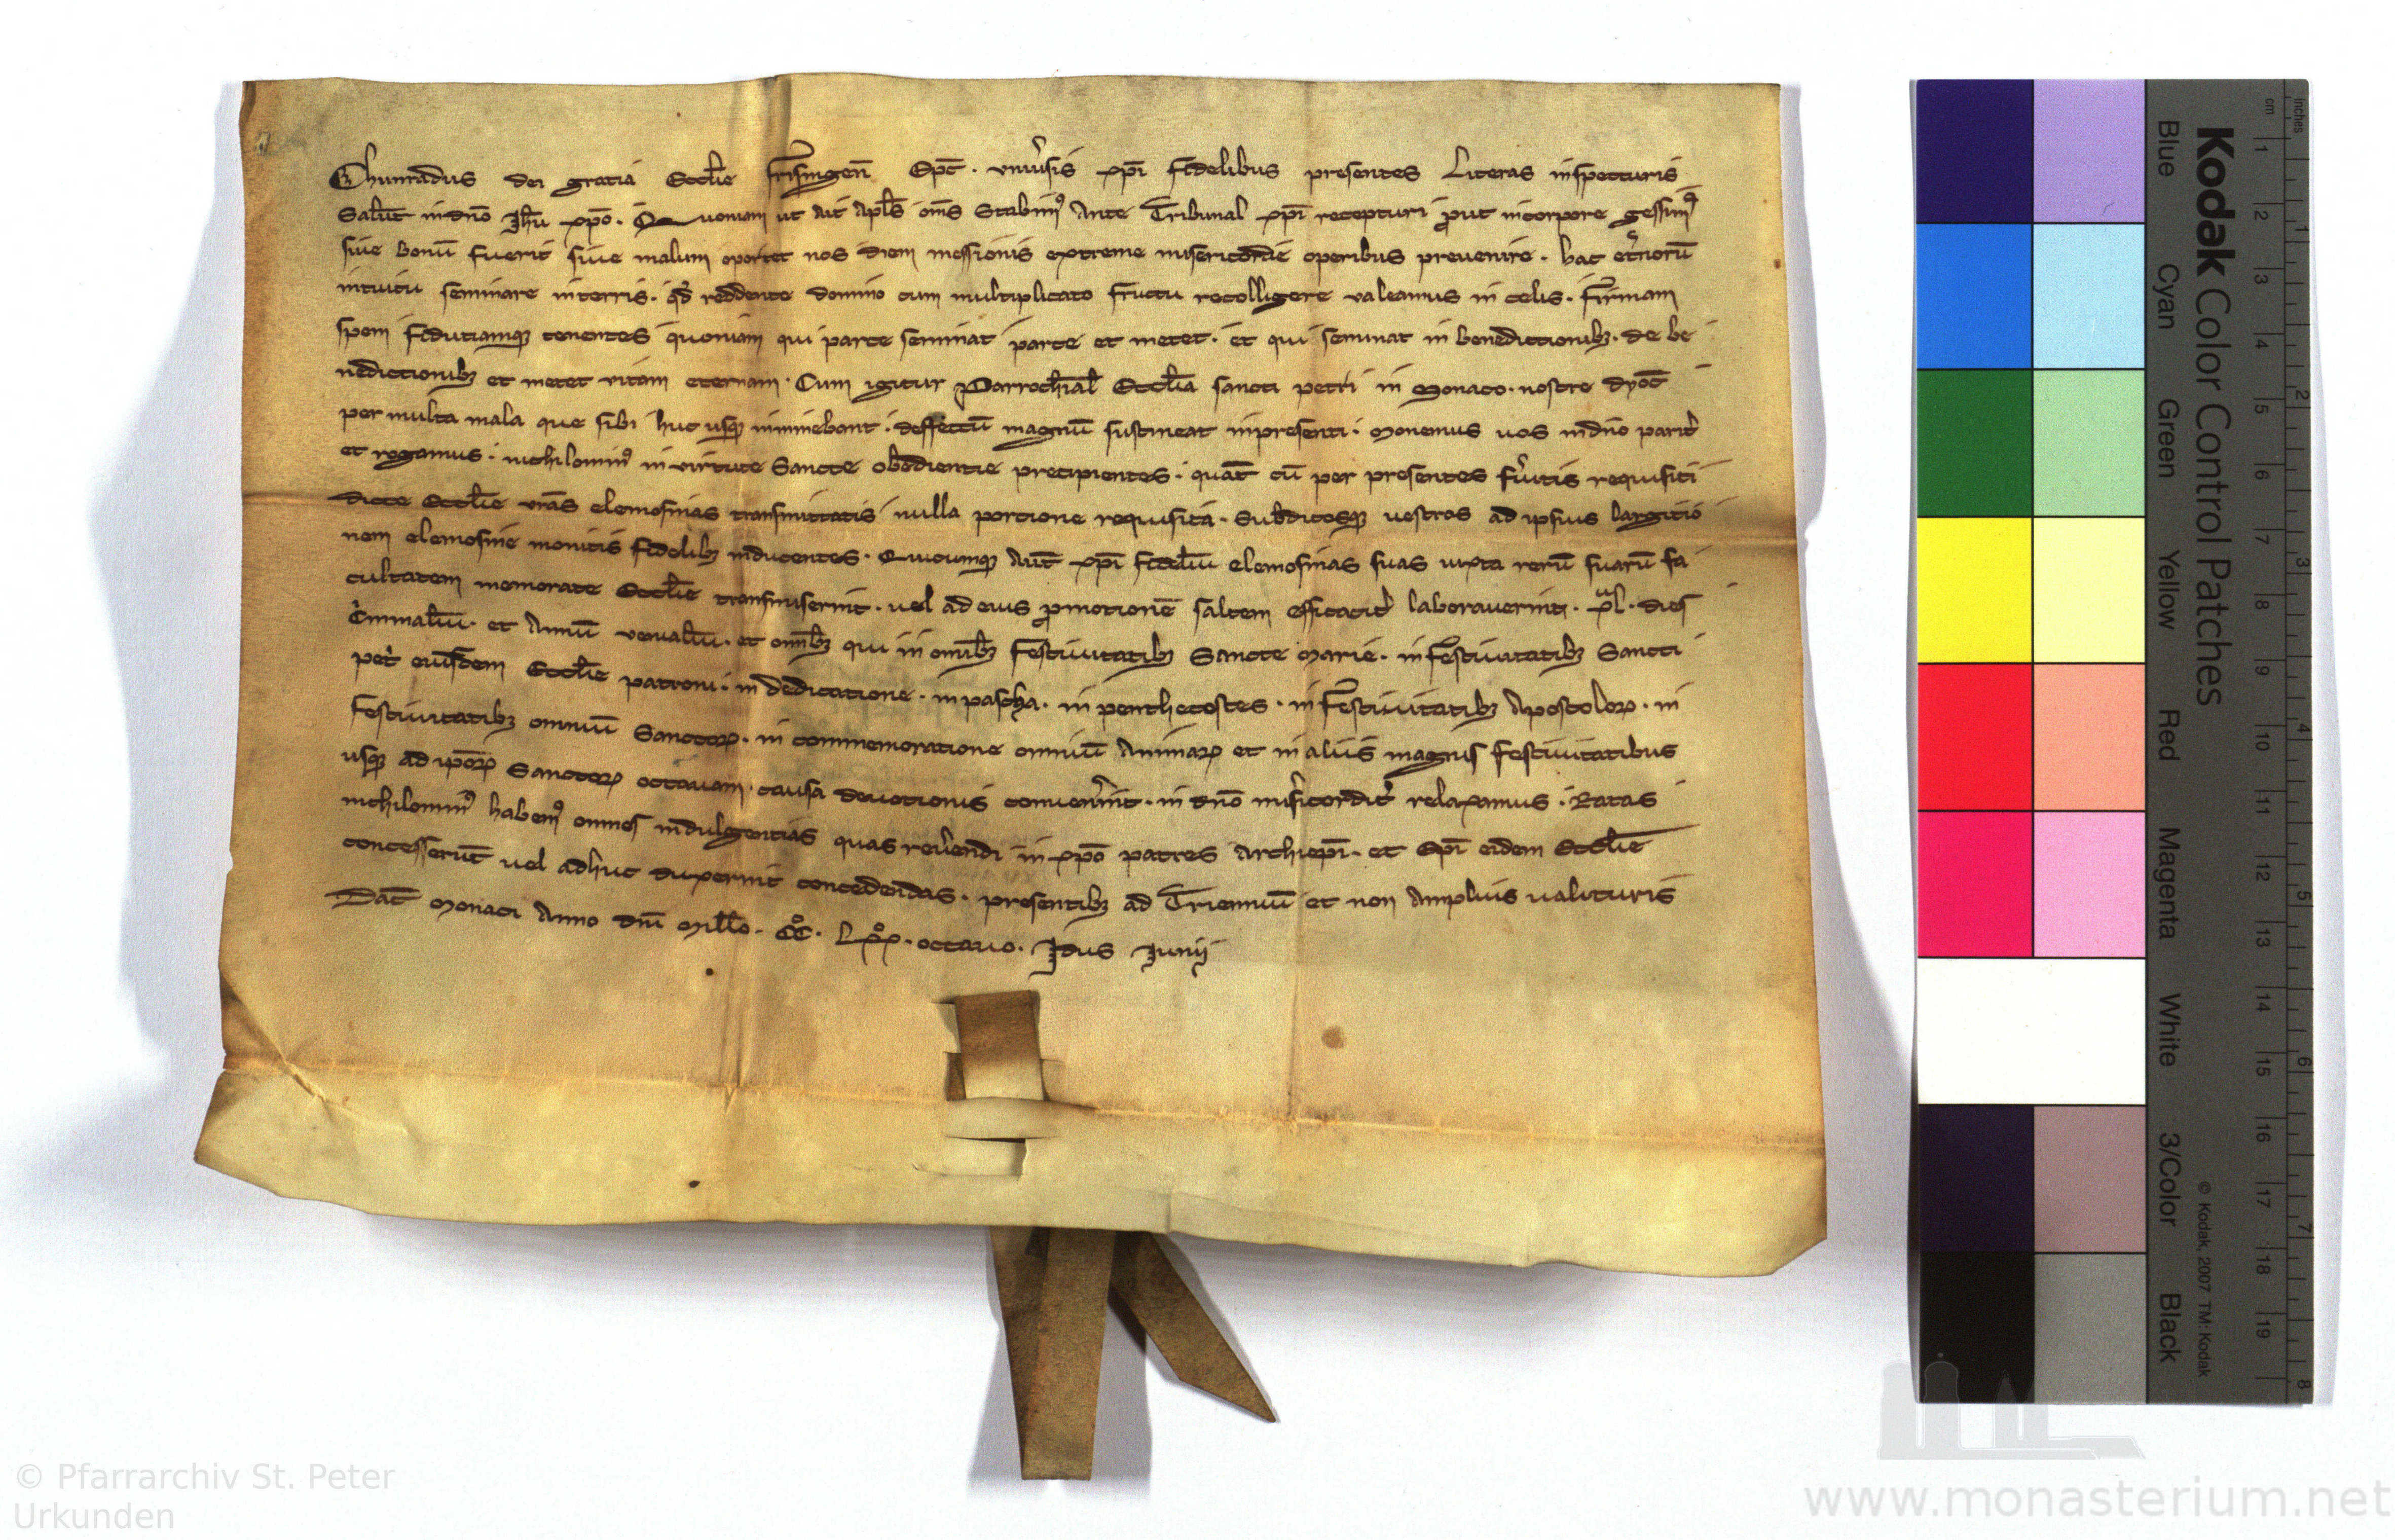 Chunradus dei gratia Eccl̄ie Frisingen̄ Ep̄c . vniu͛sis xp̄i fidelibus presentes Literas inspecturis
Salut̄ in dn̄o Jh̄u xp̄o . Quoniam ut ait Apl̄s om̄s Stabimꝰ Ante Tribunal xp̄i recepturi ꝓut in corpore gessimꝰ
siue bonū fuerit siue malum oportet nos diem messionis extreme misericordie operibus preuenire . hac et͛norū
intuitu seminare in terris . qd̄ reddente domino cum multiplicato fructu recolligere valeamus in celis . Firmam
spem fiduciamqꝫ tenentes quoniam qui parce seminat parce et metet . et qui seminat in benedictionibꝫ . de be
nedictionibꝫ et metet vitam eternam . Cum igitur Parrochial̄ Eccl̄ia sancti petri in Monaco . nostre dyoc̄
per multa mala que sibi huc usqꝫ imminebant . deffectū magnū sustineat in presenti . Monemus uos in dn̄o parit͛
et rogamus . nichilominꝰ in virtute Sancte obedientie precipientes . quat̄ cū per presentes fu͛itis requisiti
dicte Eccl̄ie vr̄as elemosinas transmittatis nulla portione requisita . Subditosqꝫ uestros ad ipsius largitio
nem elemosine monitis fidelibꝫ inducentes . Quicumqꝫ Aut̄ xp̄i fideliū elemosinas suas iuxta rerū suarū fa
cultatem memorate Eccl̄ie transmiserint . uel ad eius ꝓmotionē saltem efficacit͛ laborauerint . xl . dies
c͛minaliū . et Annū venaliū . et om̄ibꝫ qui in om̄ibꝫ Festiuitatibꝫ Sancte Marie . in Festiuitatibꝫ Sancti
pet͛ eiusdem Eccl̄ie patroni . in dedicatione . in pascha . in penthecostes . in Festiuitatibꝫ Apostoloꝝ . in
Festiuitatibꝫ omniū Sanctoꝝ . in commemoratione omniū Animaꝝ et in aliis magnis festiuitatibus
usqꝫ ad ip̄oꝝ Sanctoꝝ octauam . causa deuotionis conuen͛int . in dn̄o mis͛icordit͛ relaxamus . Ratas
nichilominꝰ habemꝰ omnes indulgentias quas reu͛endi in xp̄o patres Archiepī . et Epī eidem Eccl̄ie
concesserūt uel adhuc duxerint concedendas . presentibꝫ ad Trienniū et non Amplius ualituris
Dat̄ Monaci Anno dn̄i Mill̄o . CC° . Lxx° . octauo . Jdus Junij
Kodak Color Control Patches
Blue Cyan Green Yellow Red Magenta White 3/Color Black
© Kodak, 2007 TM: Kodak
inches 1 2 3 4 5 6 7 8
cm 1 2 3 4 5 6 7 8 9 10 11 12 13 14 15 16 17 18 19
© Pfarrarchiv St. Peter
Urkunden
www.monasterium.net